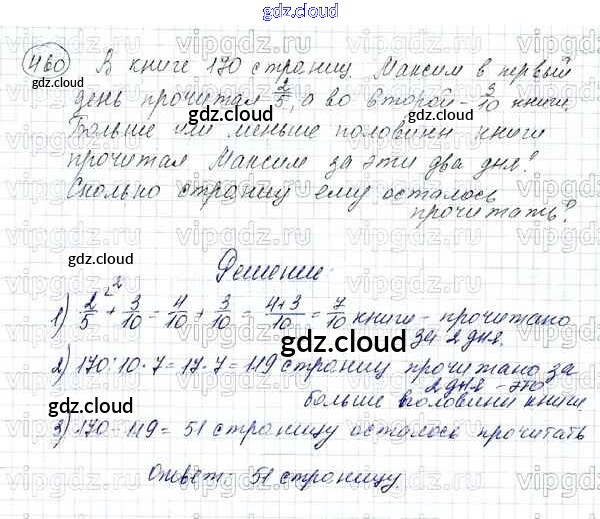 gdz.cloud
460 В книге 170 страниц. Максим в первый
день прочитал 2/5, а во второй - 3/10 книги.
Больше или меньше половины книги
прочитал Максим за эти два дня?
Сколько страниц ему осталось
прочитать?
Решение
1) 2/5 + 3/10 = 4/10 + 3/10 = 4+3/10 = 7/10 книги - прочитано
за 2 дня.
2) 170 : 10 · 7 = 17 · 7 = 119 страниц прочитано за
2 дня - это
больше половины книги.
3) 170 - 119 = 51 страницу осталось прочитать
Ответ: 51 страницу.
gdz.cloud
vipgdz.ru